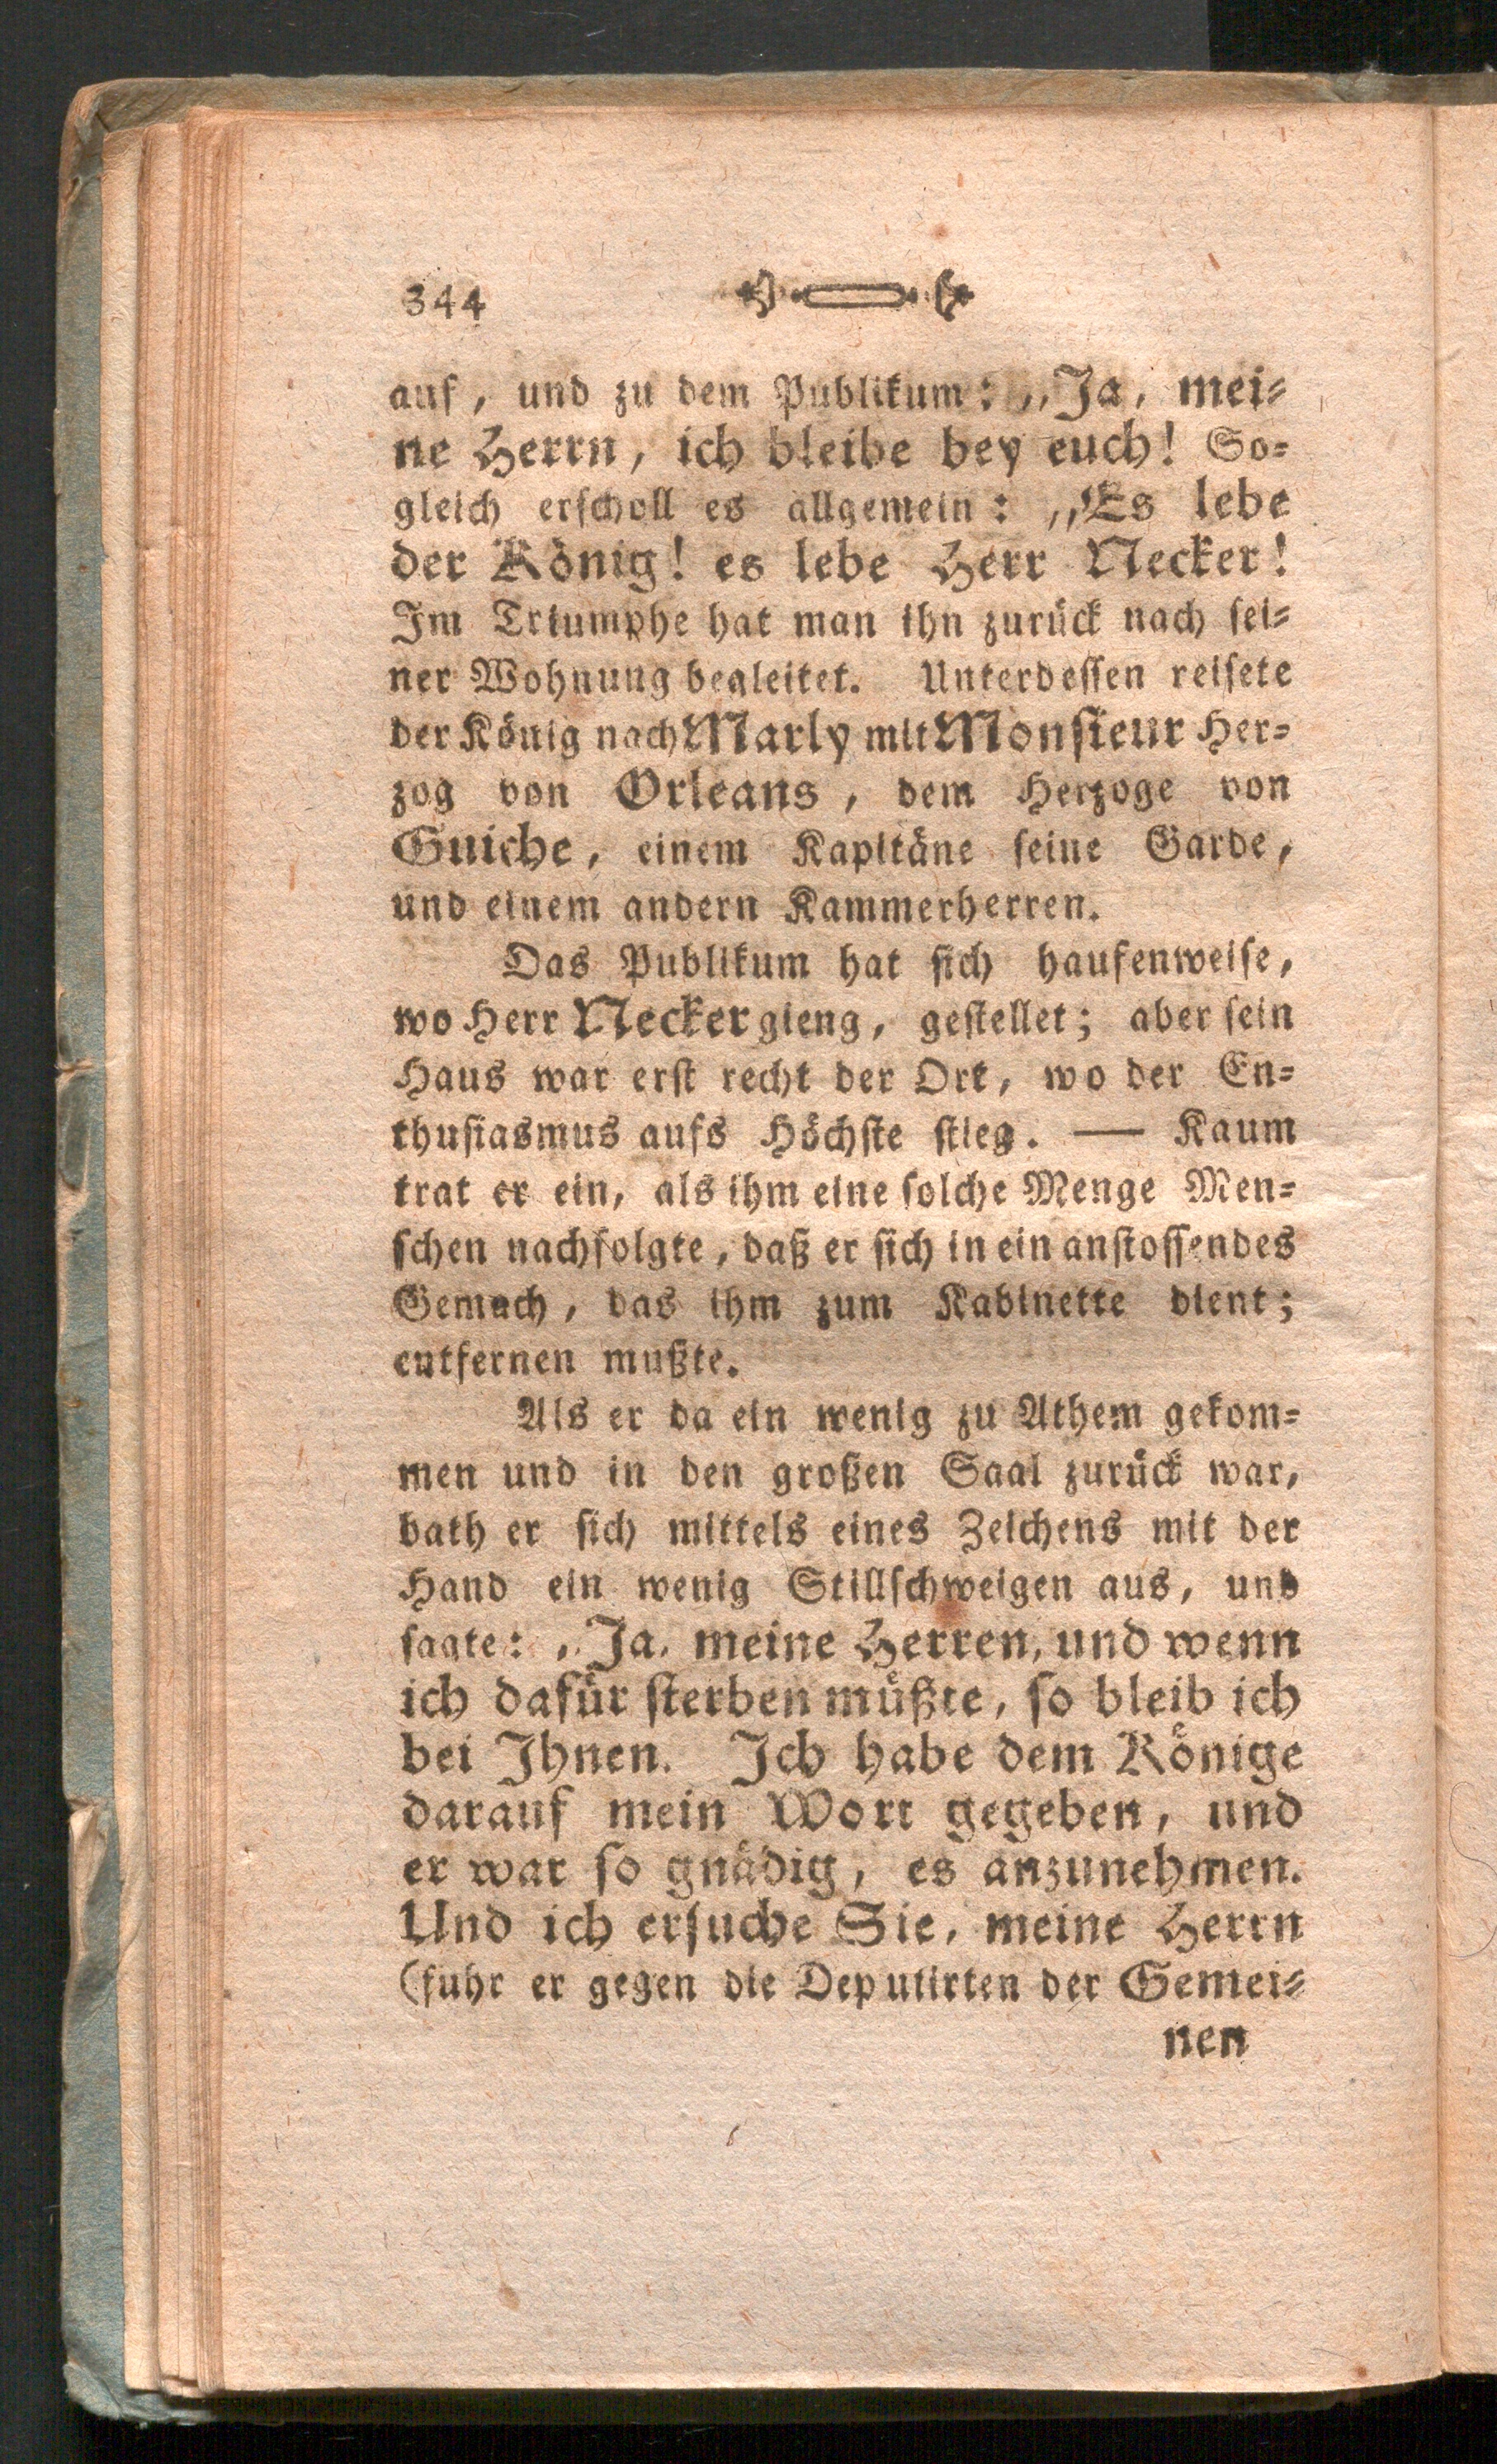 344
auf, und zu dem Publikum: „Ja, mei-
ne Herrn, ich bleibe bey euch! So-
gleich erscholl es allgemein: „Es lebe
der König! es lebe Herr Necker!
Im Triumphe hat man ihn zurück nach sei-
ner Wohnung begleitet. Unterdessen reisete
der König nach Marly mit Monsieur Her-
zog von Orleans, dem Herzoge von
Guiche, einem Kapitäne seine Garde,
und einem andern Kammerherren.
Das Publikum hat sich haufenweise,
wo Herr Necker gieng, gestellet; aber sein
Haus war erst recht der Ort, wo der En-
thusiasmus aufs Höchste stieg. — Kaum
trat er ein, als ihm eine solche Menge Men-
schen nachfolgte, daß er sich in ein anstossendes
Gemach, das ihm zum Kabinette dient;
entfernen mußte.
Als er da ein wenig zu Athem gekom-
men und in den großen Saal zurück war,
bath er sich mittels eines Zeichens mit der
Hand ein wenig Stillschweigen aus, und
sagte: „Ja, meine Herren, und wenn
ich dafür sterben müßte, so bleib ich
bei Ihnen. Ich habe dem Könige
darauf mein Wort gegeben, und
er war so gnädig, es anzunehmen.
Und ich ersuche Sie, meine Herrn
(fuhr er gegen die Deputirten der Gemei-
nen